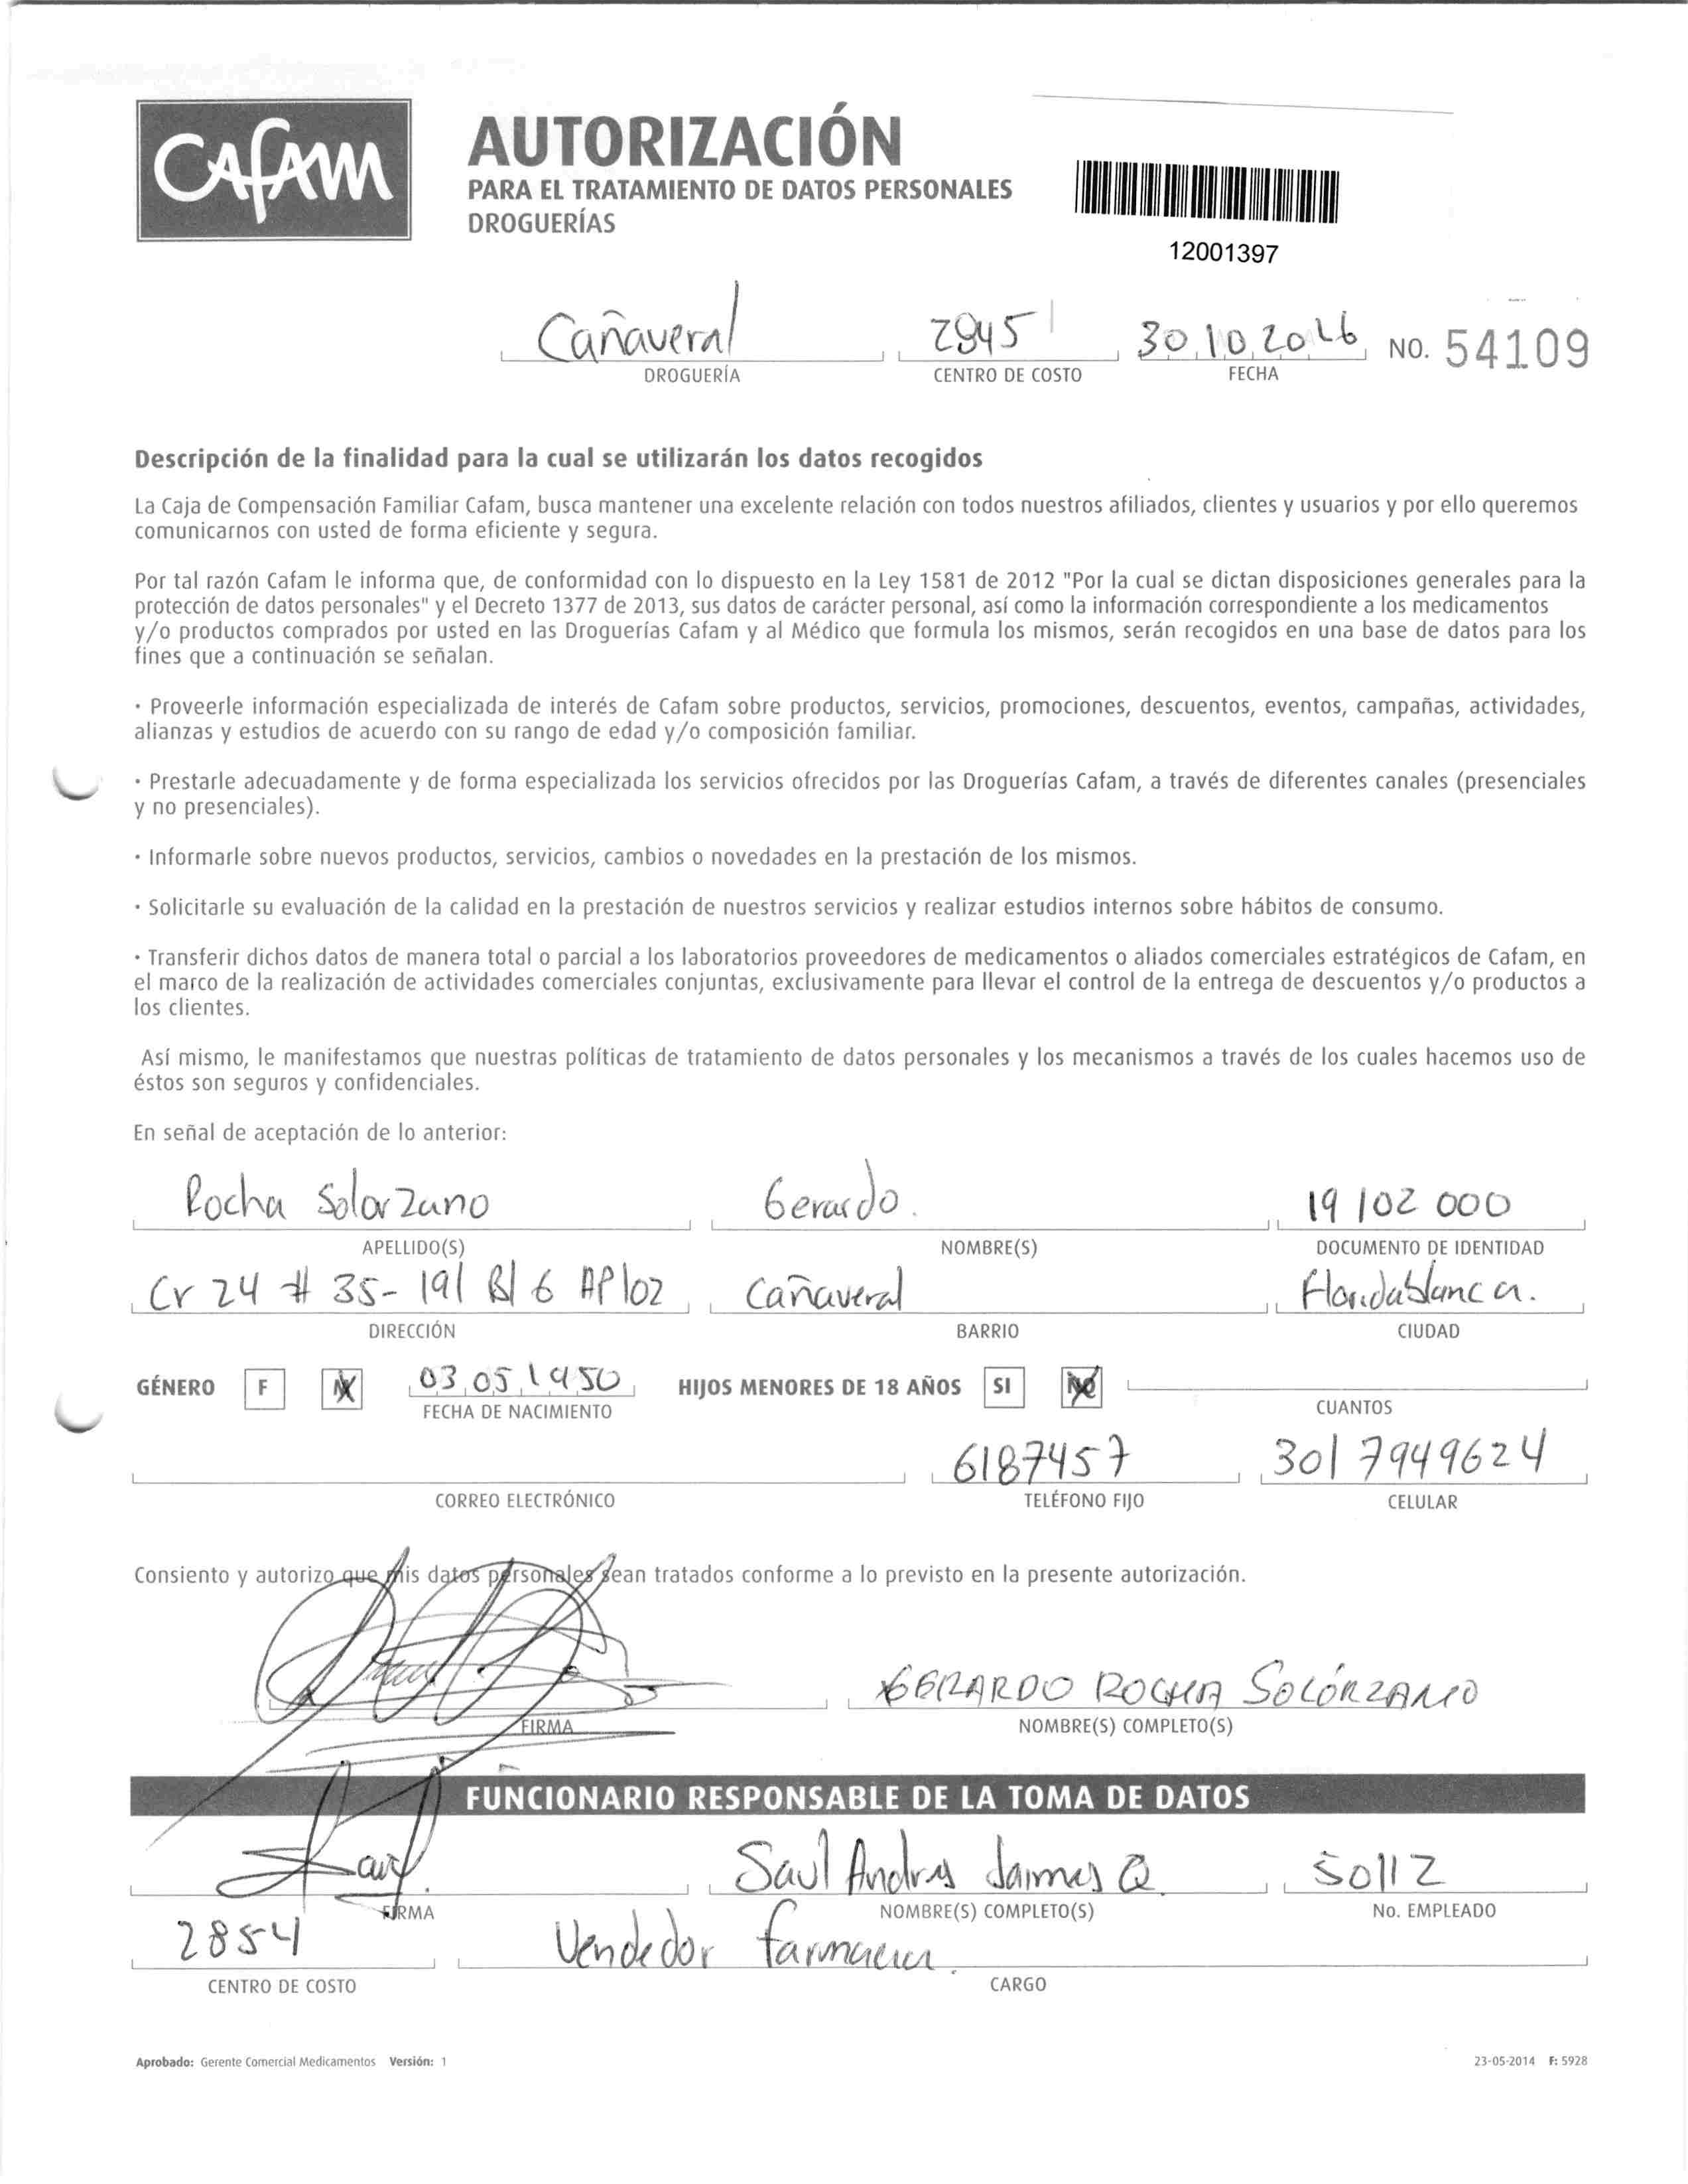 CAFAM
AUTORIZACIÓN
PARA EL TRATAMIENTO DE DATOS PERSONALES
DROGUERÍAS
12001397
Cañaveral 2845 30 10 2016 NO. 54109
DROGUERÍA CENTRO DE COSTO FECHA
Descripción de la finalidad para la cual se utilizarán los datos recogidos
La Caja de Compensación Familiar Cafam, busca mantener una excelente relación con todos nuestros afiliados, clientes y usuarios y por ello queremos
comunicarnos con usted de forma eficiente y segura.
Por tal razón Cafam le informa que, de conformidad con lo dispuesto en la Ley 1581 de 2012 "Por la cual se dictan disposiciones generales para la
protección de datos personales" y el Decreto 1377 de 2013, sus datos de carácter personal, así como la información correspondiente a los medicamentos
y/o productos comprados por usted en las Droguerías Cafam y al Médico que formula los mismos, serán recogidos en una base de datos para los
fines que a continuación se señalan.
· Proveerle información especializada de interés de Cafam sobre productos, servicios, promociones, descuentos, eventos, campañas, actividades,
alianzas y estudios de acuerdo con su rango de edad y/o composición familiar.
· Prestarle adecuadamente y de forma especializada los servicios ofrecidos por las Droguerías Cafam, a través de diferentes canales (presenciales
y no presenciales).
· Informarle sobre nuevos productos, servicios, cambios o novedades en la prestación de los mismos.
· Solicitarle su evaluación de la calidad en la prestación de nuestros servicios y realizar estudios internos sobre hábitos de consumo.
· Transferir dichos datos de manera total o parcial a los laboratorios proveedores de medicamentos o aliados comerciales estratégicos de Cafam, en
el marco de la realización de actividades comerciales conjuntas, exclusivamente para llevar el control de la entrega de descuentos y/o productos a
los clientes.
Así mismo, le manifestamos que nuestras políticas de tratamiento de datos personales y los mecanismos a través de los cuales hacemos uso de
éstos son seguros y confidenciales.
En señal de aceptación de lo anterior:
Rocha Solorzano Gerardo. 19 102 000
APELLIDO(S) NOMBRE(S) DOCUMENTO DE IDENTIDAD
Cr 24 # 35-191 Bl 6 AP 102 Cañaveral Floridablanca.
DIRECCIÓN BARRIO CIUDAD
GÉNERO F M 03 05 1950 HIJOS MENORES DE 18 AÑOS SI NO
FECHA DE NACIMIENTO CUANTOS
6187457 301 7949624
CORREO ELECTRÓNICO TELÉFONO FIJO CELULAR
Consiento y autorizo que mis datos personales sean tratados conforme a lo previsto en la presente autorización.
GERARDO ROCHA SOLÓRZANO
FIRMA NOMBRE(S) COMPLETO(S)
FUNCIONARIO RESPONSABLE DE LA TOMA DE DATOS
Saul Andres Jaimes Q. 50112
FIRMA NOMBRE(S) COMPLETO(S) No. EMPLEADO
2854 Vendedor farmacia.
CENTRO DE COSTO CARGO
Aprobado: Gerente Comercial Medicamentos Versión: 1 23-05-2014 F: 5928